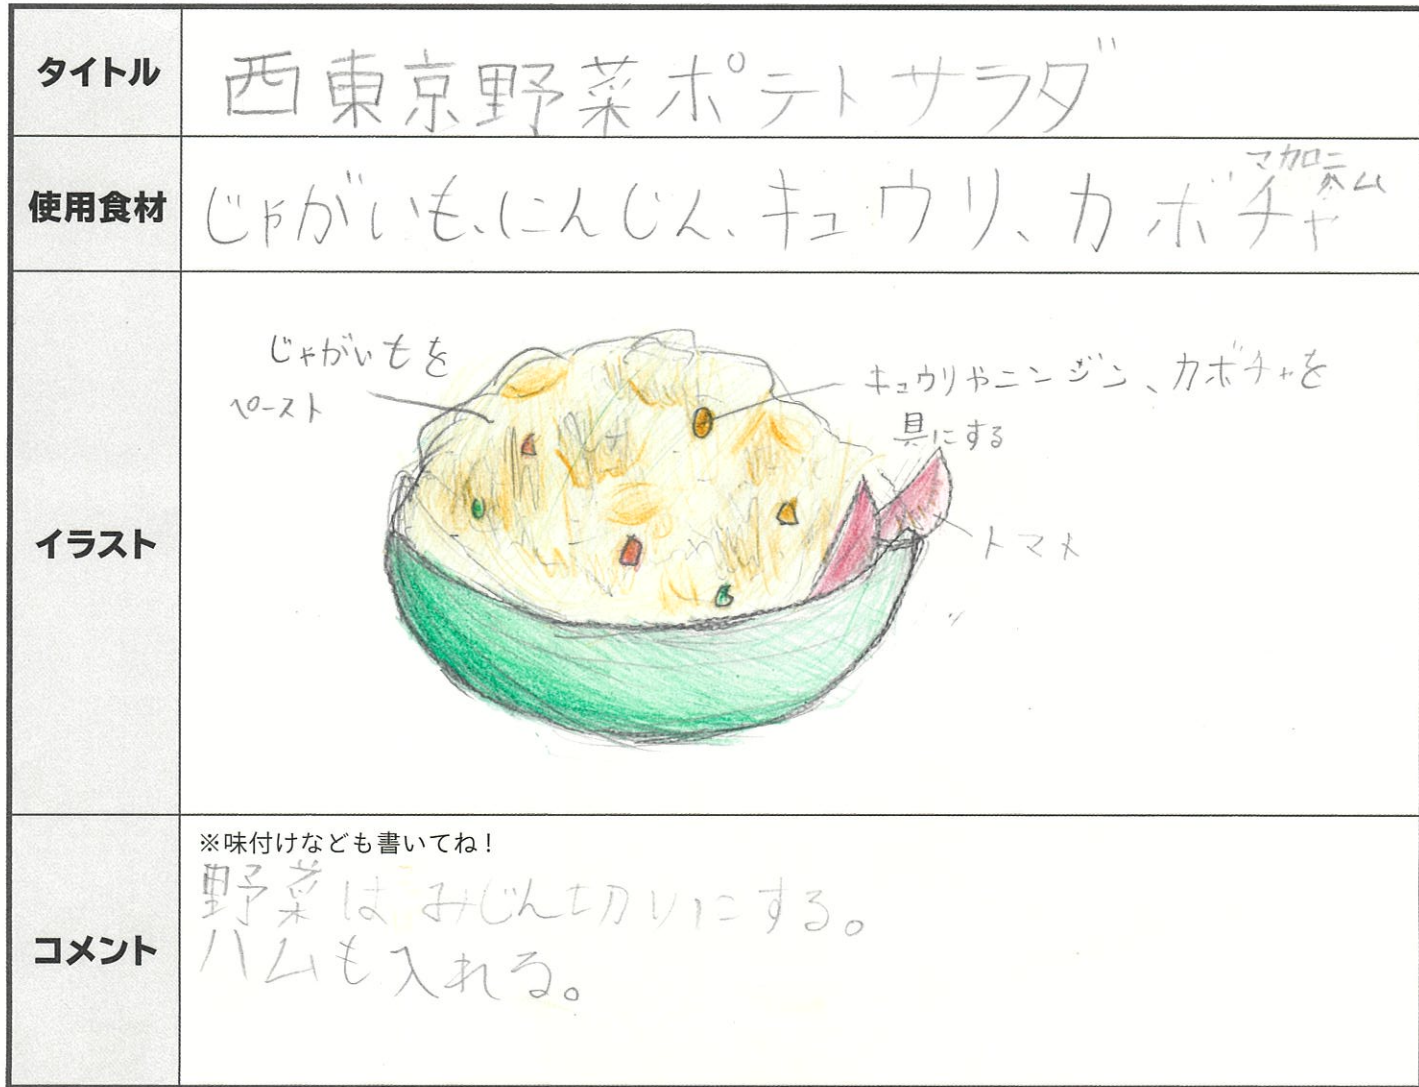 タイトル
西東京野菜ポテトサラダ
使用食材
マカロニ
ハム
じゃがいも、にんじん、キュウリ、カボチャ
イラスト
じゃがいもを
ペースト
キュウリやニンジン、カボチャを
具にする
トマト
コメント
※味付けなども書いてね!
野菜はみじん切りにする。
ハムも入れる。